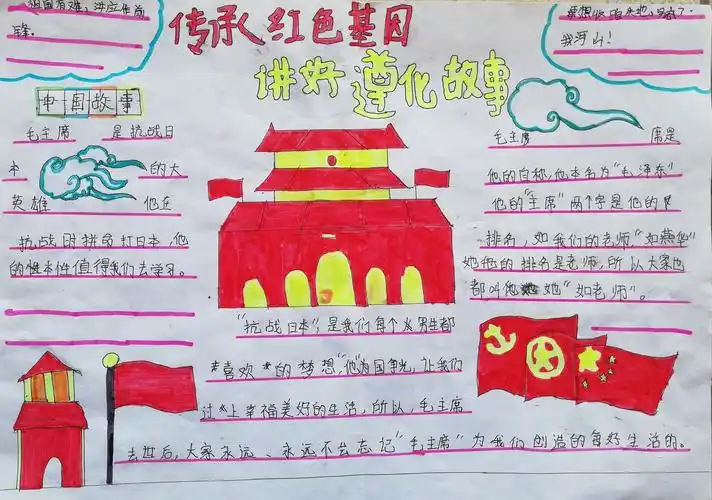 祖国有难,洪应作前
锋。
传承红色基因
讲好遵化故事
我河山!
中国故事
毛主席 是抗战日
本 的大
英雄 他在
抗战时拼命打日本,他
的性本性值得我们去学习。
毛主席 席是
他的自称,他本名为“毛泽东”
他的“主席”两个字是他的
排名,如我们的老师,“如燕华”
她他的排名是老师,所以大家也
都叫他她“如老师”。
“抗战日本”,是我们每个 男生都
喜欢 的梦想,“他”为国争光,让我们
过 上幸福美好的生活,所以,毛主席
去世后,大家永远、永远不会忘记“毛主席”为我们创造的每好生活的。